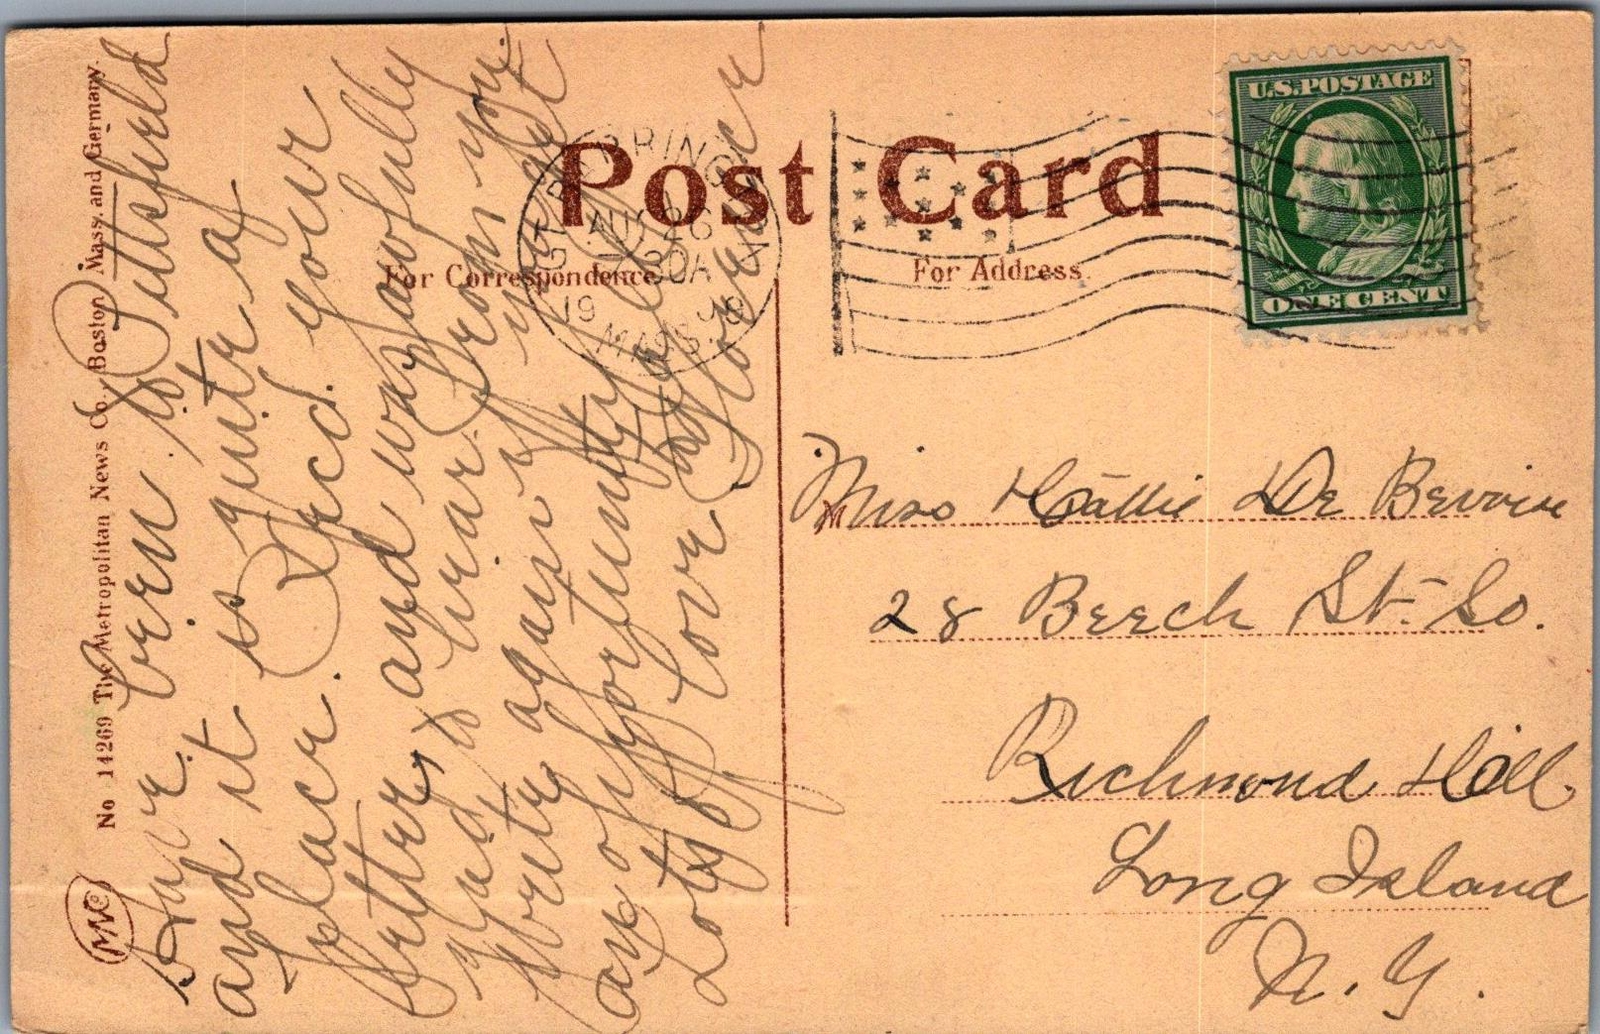 No 14269 The Metropolitan News Co., Boston Mass. and Germany.
MNC
Have been to Pittsfield
and it is quite a
place. Recd. your
letter and was awfully
glad to hear from you.
Write again if you get
an opportunity
Lots of love
Florence
Post Card
For Correspondence
For Address.
GT. BARRINGTON
AUG 26
30A
19
MASS.
U.S. POSTAGE
ONE CENT
Miss Hattie De Bevoise
28 Beech St. So.
Richmond Hill
Long Island
N. Y.